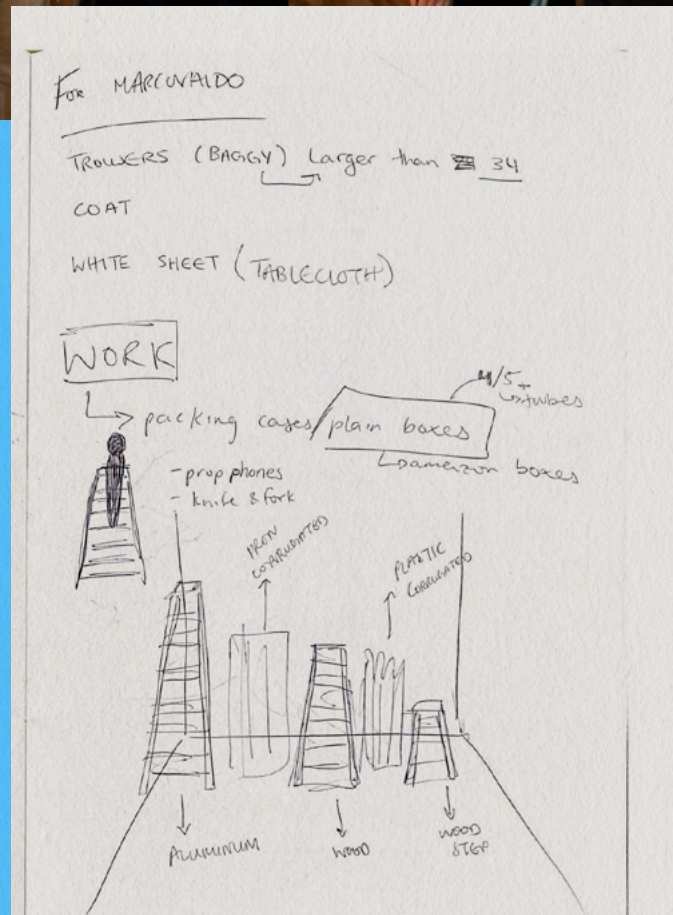 For MARCUVALDO
TROUSERS (BAGGY) Larger than 34
COAT
WHITE SHEET (TABLECLOTH)
WORK
4/5
tubes
packing cases/plain boxes
amazon boxes
- prop phones
- knife & fork
IRON
CORRUGATED
PLASTIC
CORRUGATED
ALUMINUM
WOOD
WOOD
STEP